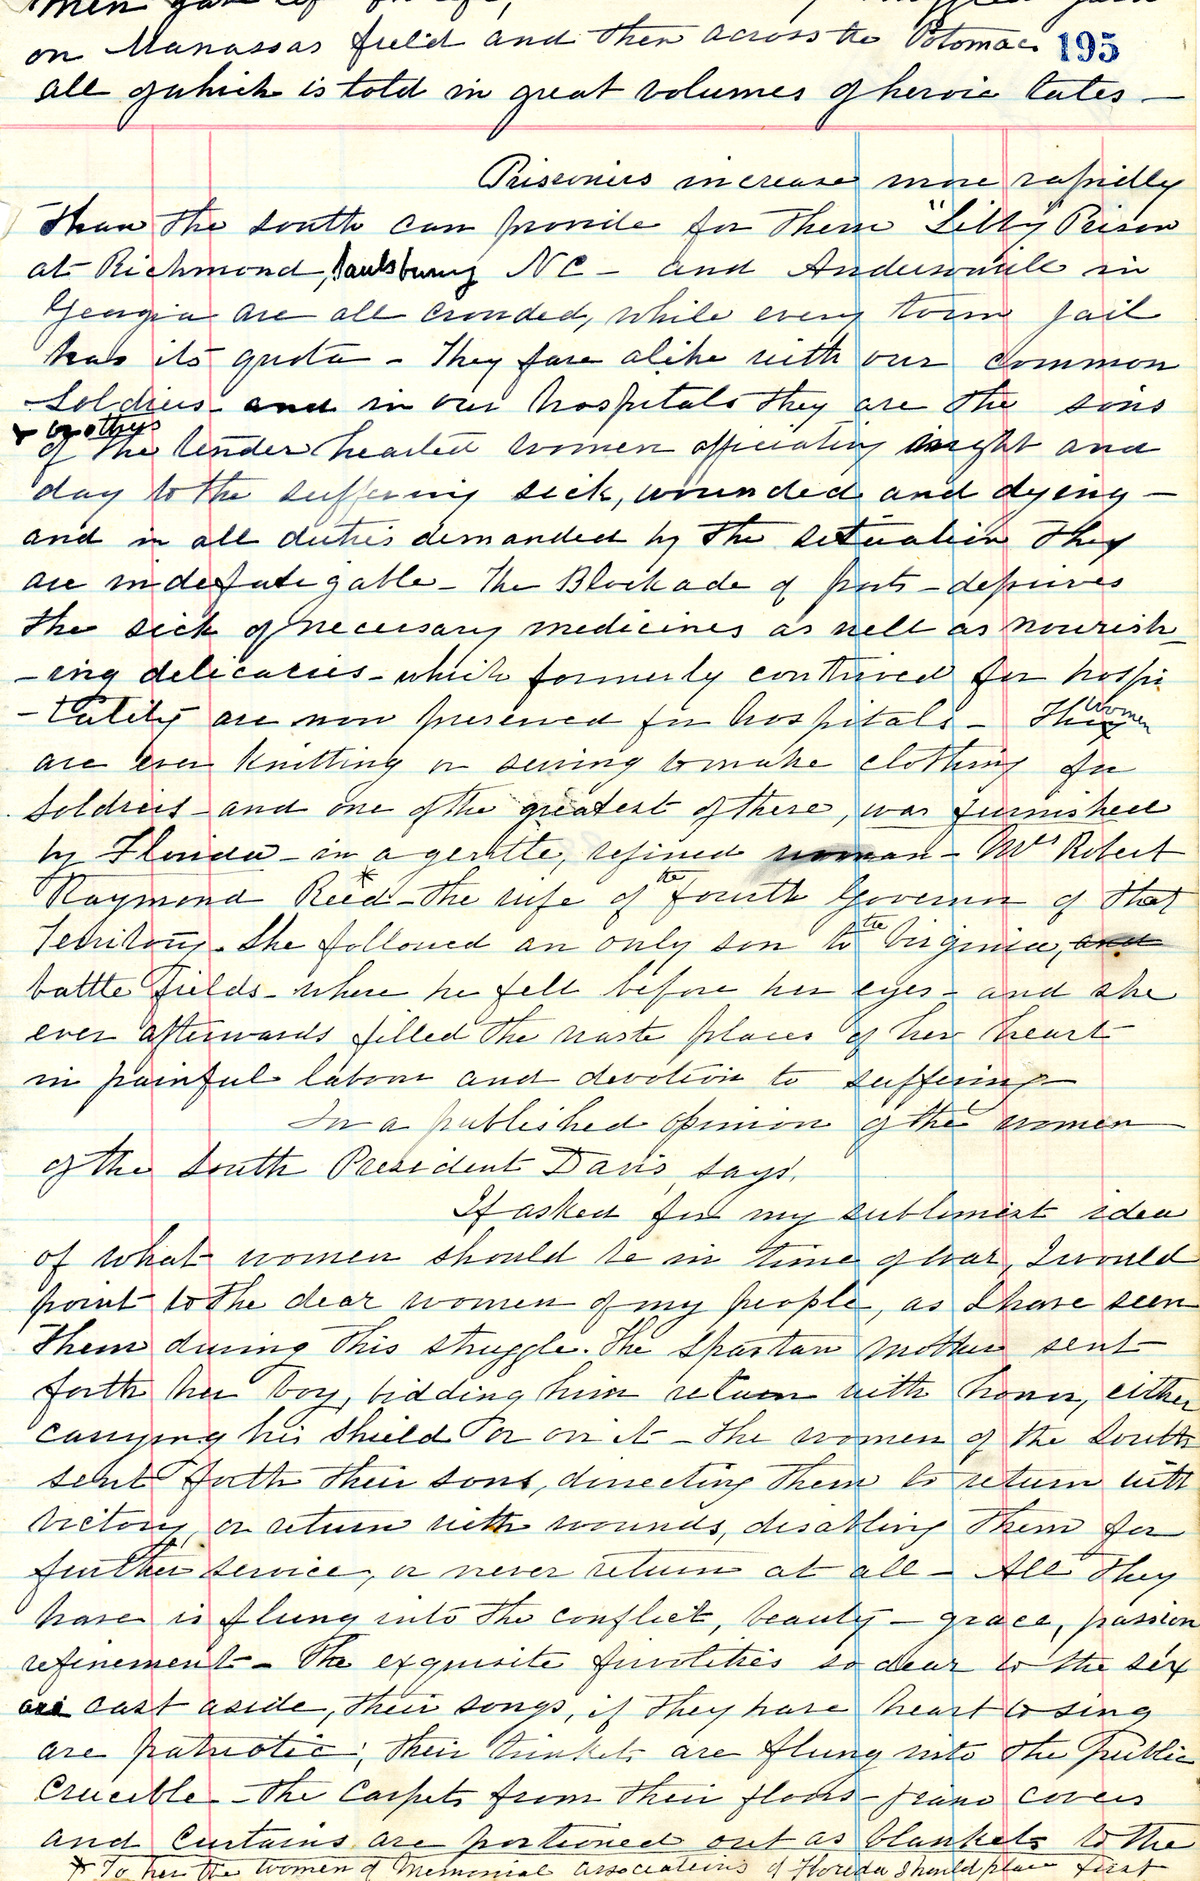 on Manassas field and then across the Potomac 195
all of which is told in great volumes of heroic tales —
Prisoners increase more rapidly
than the South can provide for them "Libby" Prison
at Richmond, Saulsbury NC - and Andersonville in
Georgia are all crowded, while every town jail
has its quota - They fare alike with our common
Soldiers - and in our hospitals they are the sons
& brothers
of the tender hearted women officiating night and
day to the suffering sick, wounded and dying —
and in all duties demanded by the situation they
are indefatigable - The Blockade of ports - deprives
the sick of necessary medicines as well as nourish
- ing delicacies - which formerly contrived for hospi
- tality are now preserved for hospitals - They women
are ever knitting or sewing to make clothing for
Soldiers - and one of the greatest of these, was furnished
by Florida - in a gentle, refined woman - Mrs Robert
Raymond Reed * - the wife of the fourth Governor of that
Territory. She followed an only son to the Virginia, and
battle fields - where he fell before her eyes - and she
ever afterwards filled the waste places of her heart
in painful labour and devotion to suffering —
In a published opinion of the women
of the South President Davis, says.
If asked for my sublimest idea
of what women should be in time of war, I would
point to the dear women of my people, as I have seen
them during this struggle. The Spartan mother sent
forth her boy, bidding him return with honor, either
carrying his shield or on it - The women of the South
sent forth their sons, directing them to return with
victory, or return with wounds, disabling them for
further service, or never return at all - All they
have is flung into the conflict, beauty - grace, passion
refinement - The exquisite frivolities so dear to the sex
are cast aside, their songs, if they have heart to sing
are patriotic; their trinkets are flung into the public
crucible - The carpets from their floors - piano covers
and curtains are portioned out as blankets to the
* To her the women of Memorial associations of Florida should place first